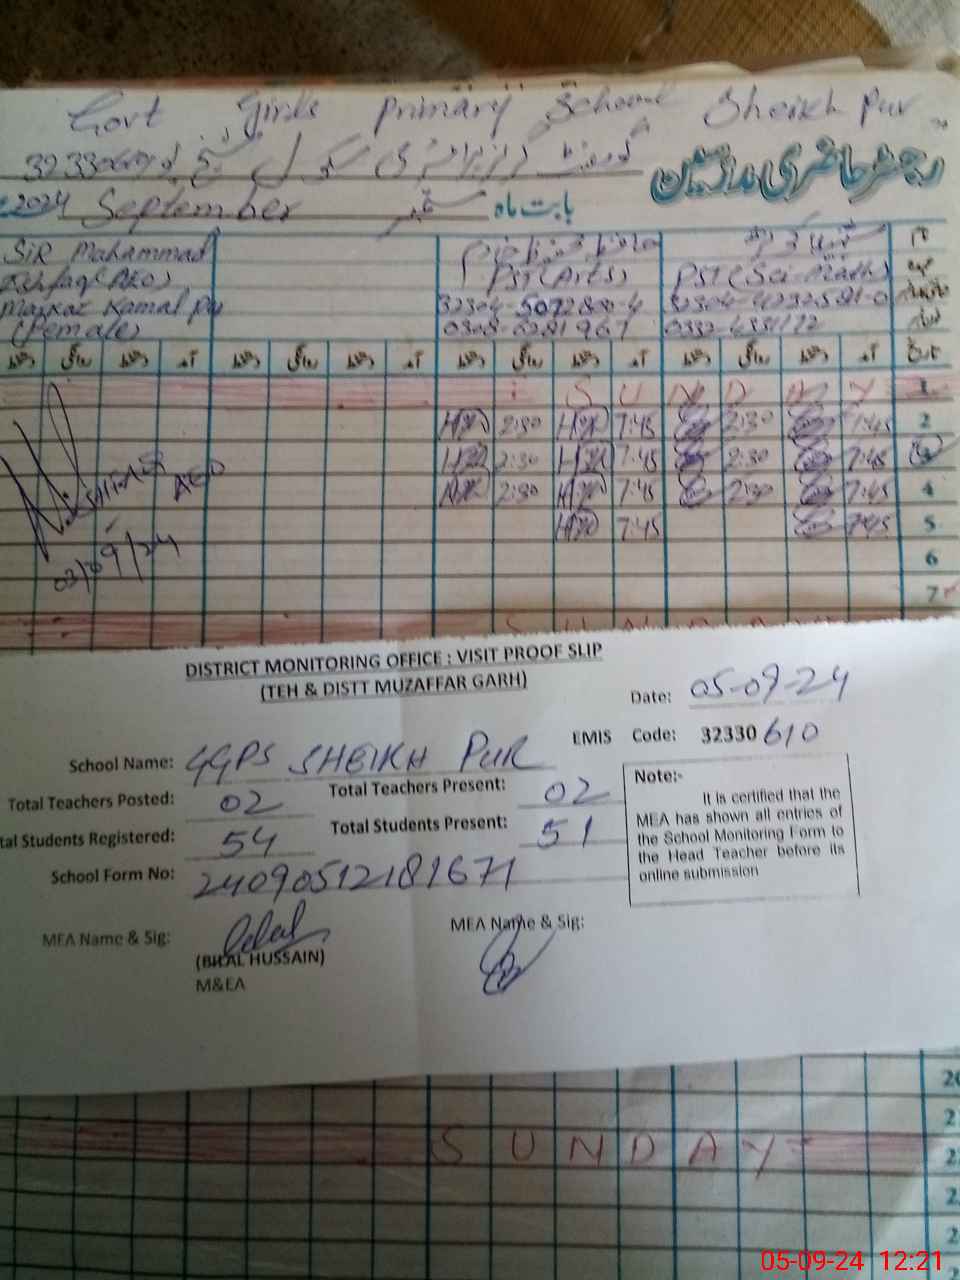 Govt Girls Primary School Sheikh Pur
رجسٹر حاضری مدرسین
2024 September ستمبر بابت ماہ
SiR Mohammad
Ishfaq (AEO)
Markaz Kamal Pur
(Female)
PST (Arts) PST (Sci-Math)
آمد دستخط روانگی دستخط آمد دستخط روانگی دستخط آمد دستخط روانگی دستخط آمد دستخط روانگی دستخط
S U N D A Y 1
2:30 7:45 2:30 7:45 2
2:30 7:45 2:30 7:45 3
2:30 7:45 2:30 7:45 4
7:45 7:45 5
6
7
AEO
03/09/24
S U N D A Y
DISTRICT MONITORING OFFICE : VISIT PROOF SLIP
(TEH & DISTT MUZAFFAR GARH)
Date: 05-09-24
EMIS Code: 32330610
School Name: GGPS SHEIKH PUR
Total Teachers Posted: 02 Total Teachers Present: 02
tal Students Registered: 54 Total Students Present: 51
School Form No: 24090512181671
Note:-
It is certified that the
MEA has shown all entries of
the School Monitoring Form to
the Head Teacher before its
online submission
MEA Name & Sig: MEA Name & Sig:
(BILAL HUSSAIN)
M&EA
S U N D A Y
05-09-24 12:21